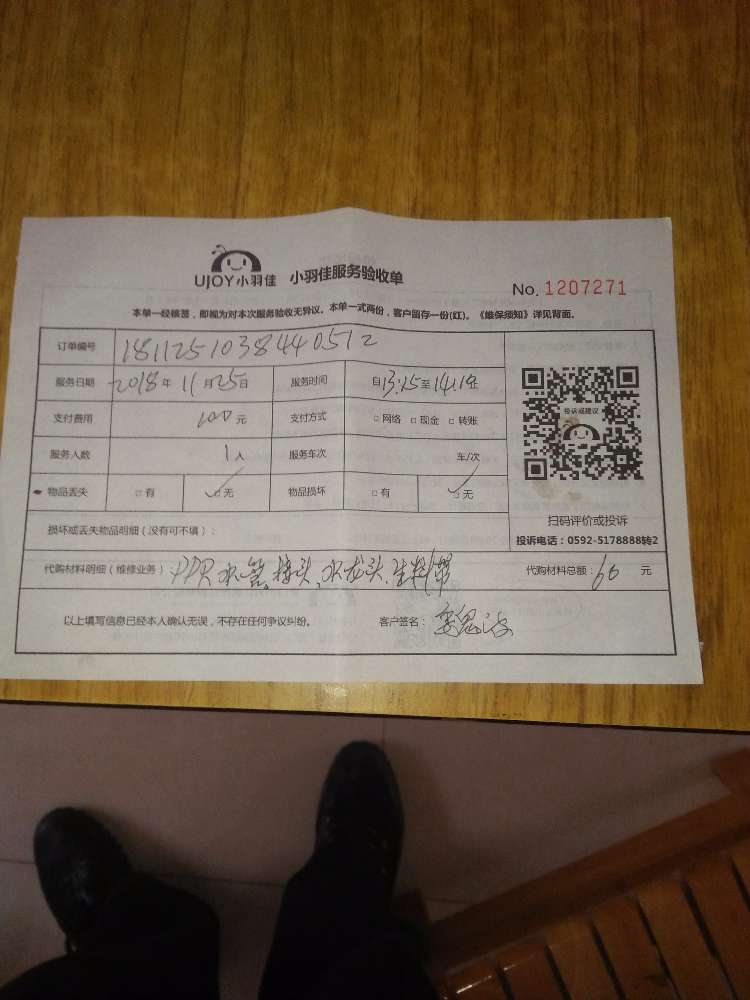 UJOY小羽佳 小羽佳服务验收单
No. 1207271
本单一经核签，即视为对本次服务验收无异议。本单一式两份，客户留存一份(红)。《维保须知》详见背面。
订单编号 181125103844 0512
服务日期 2018年 11月25日 服务时间 自13:25至14:19止
支付费用 100元 支付方式 □网络 □现金 □转账
服务人数 1人 服务车次 车/次
物品丢失 □有 ☑无 物品损坏 □有 ☑无
投诉或建议
扫码评价或投诉
投诉电话：0592-5178888转2
损坏或丢失物品明细（没有可不填）：
代购材料明细（维修业务）：PPR水管、接头、水龙头、生料带 代购材料总额：60 元
以上填写信息已经本人确认无误，不存在任何争议纠纷。 客户签名：